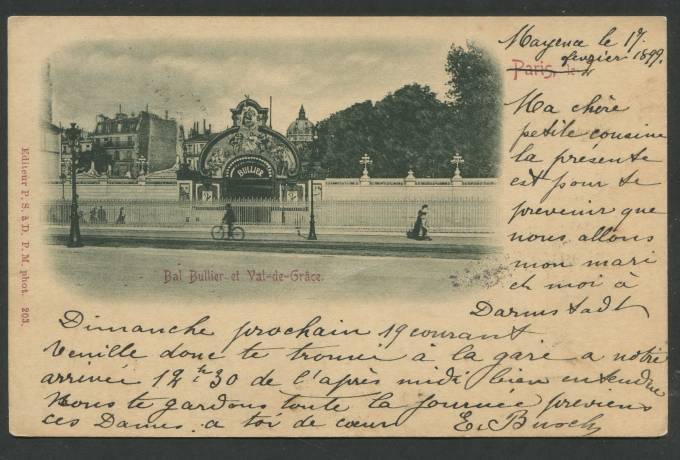 Mayence le 17
février 1899.
Paris, le
Ma chère
petite cousine
la présente
est pour te
prevenir que
nous allons
mon mari
et moi à
Darmstadt
Dimanche prochain 19 courant
Veuille donc te trouver à la gare a notre
arrivée 12 hr 30 de l'après midi bien entendu
Nous te gardons toute la journée previens
ces Dames. a toi de cœur E. Busch
BULLIER
Bal Bullier et Val-de-Grâce.
Editeur P. S. à D. P. M. phot. 203.